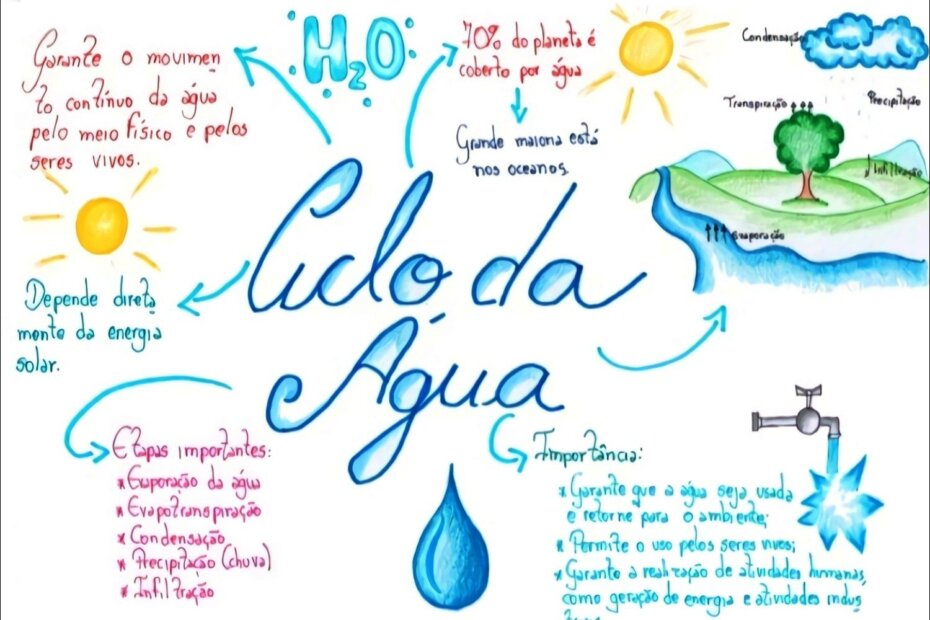 Garante o movimen
to contínuo da água
pelo meio físico e pelos
seres vivos.
H2O
70% do planeta é
coberto por água
Grande maioria está
nos oceanos.
Condensação
Transpiração
Precipitação
Infiltração
Evaporação
Ciclo da
Água
Depende direta
mente da energia
solar.
Etapas importantes:
* Evaporação da água
* Evapotranspiração
* Condensação
* Precipitação (chuva)
* Infiltração
Importância:
* Garante que a água seja usada
e retorne para o ambiente;
* Permite o uso pelos seres vivos;
* Garante a realização de atividades humanas,
como geração de energia e atividades indus